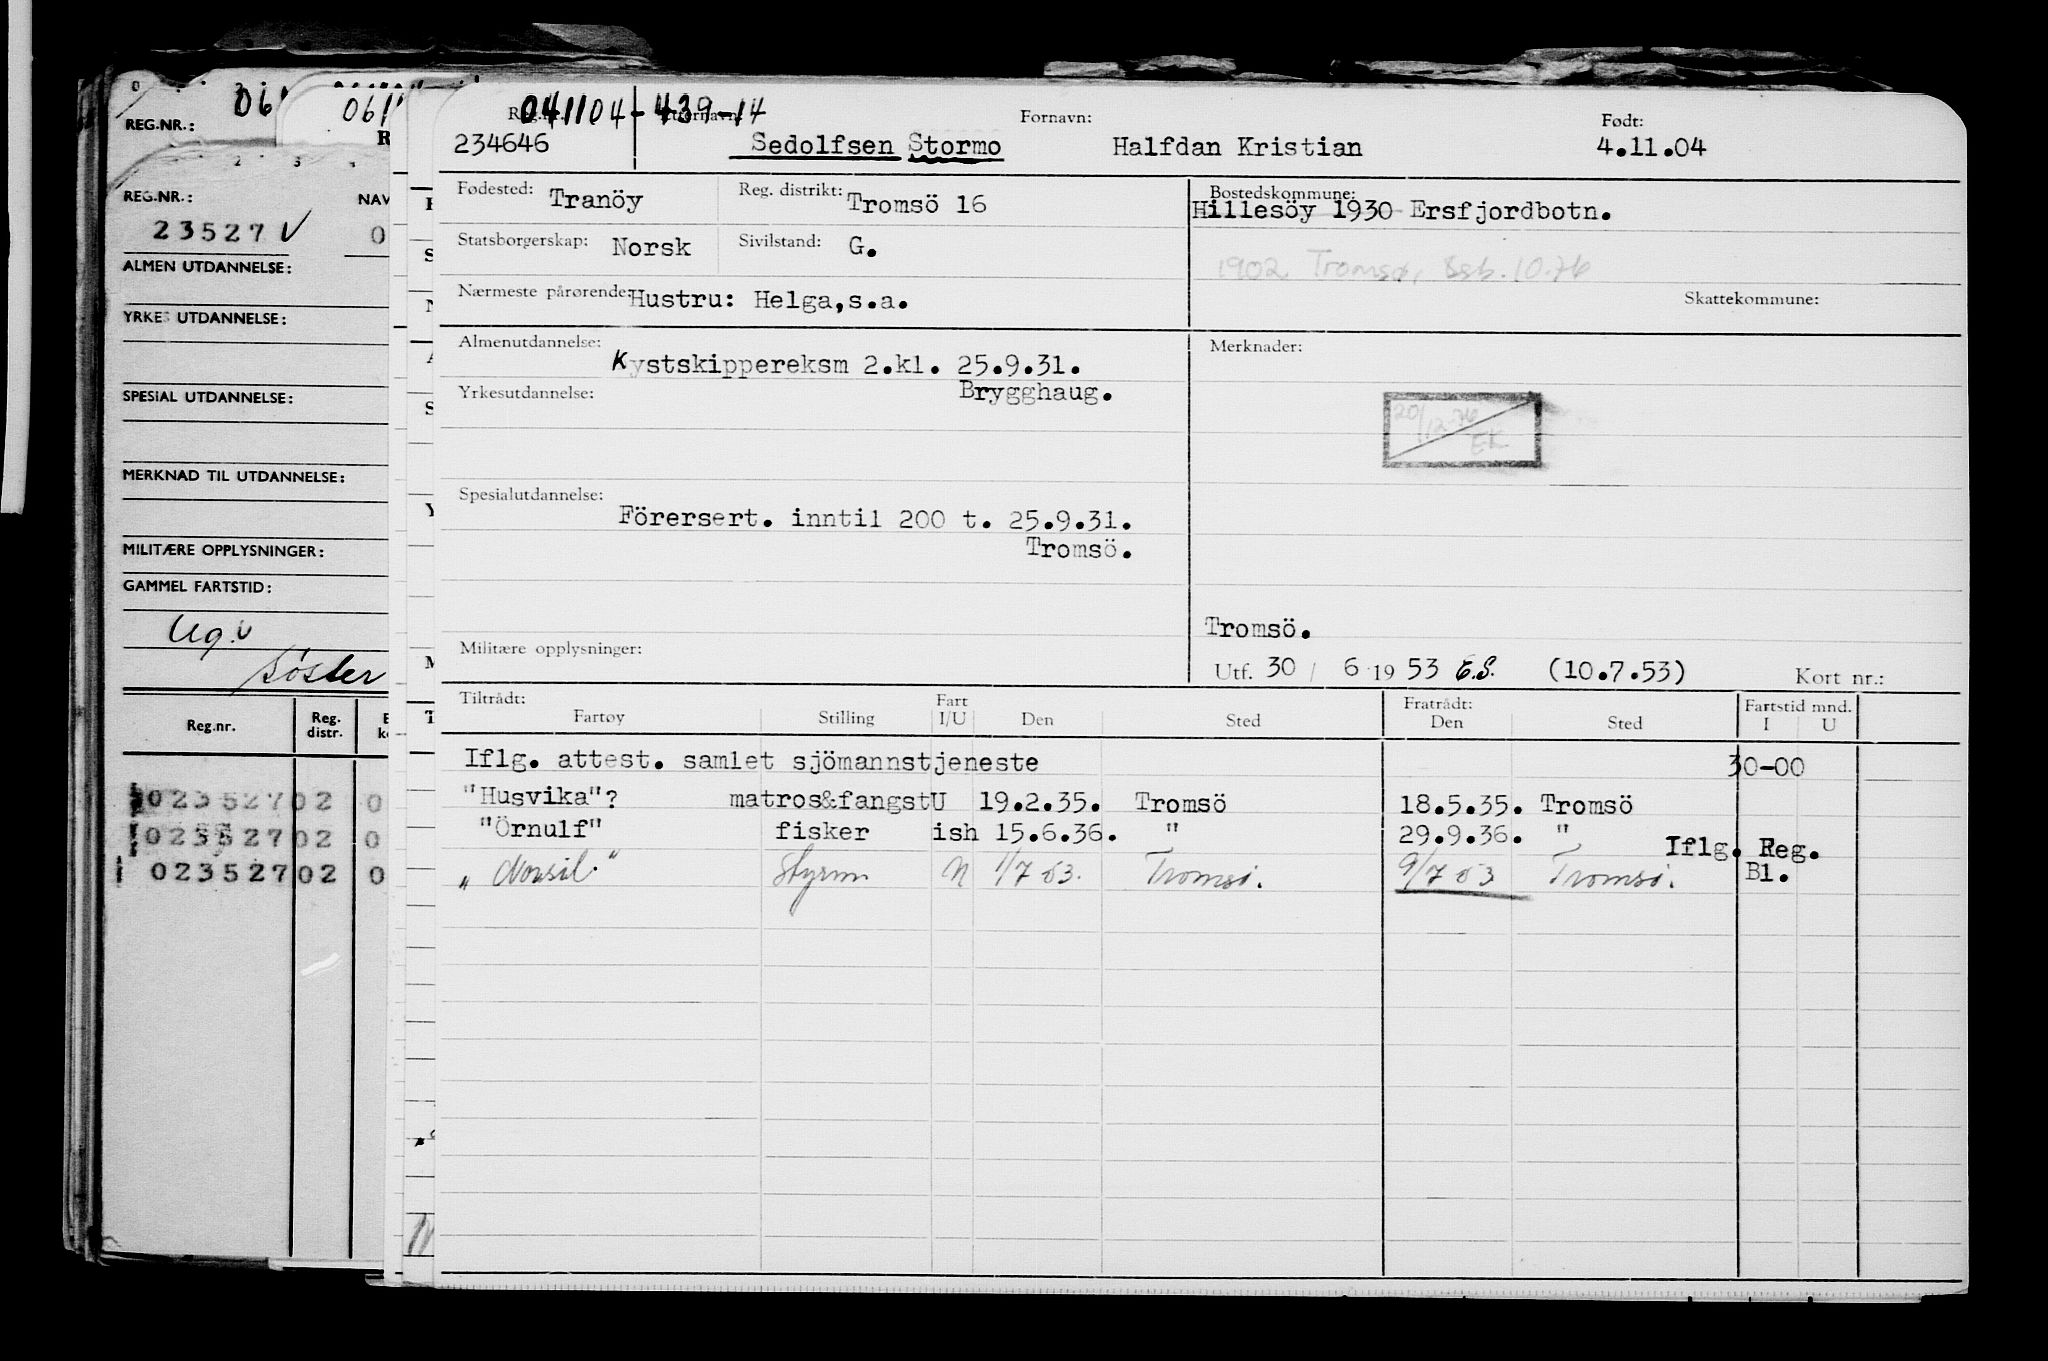 REG.NR.:
061
REG.NR.:
23527 V
NAV
ALMEN UTDANNELSE:
YRKES UTDANNELSE:
SPESIAL UTDANNELSE:
MERKNAD TIL UTDANNELSE:
MILITÆRE OPPLYSNINGER:
GAMMEL FARTSTID:
søster
Reg.nr. Reg. distr.
023527 02 0
023527 02 0
023527 02 0
041104-439-14
234646
Sedolfsen Stormo
Fornavn:
Halfdan Kristian
Født:
4.11.04
Fødested: Tranöy Reg. distrikt: Tromsö 16
Bostedskommune:
Hillesöy 1930 Ersfjordbotn.
Statsborgerskap: Norsk Sivilstand: G.
1902 Tromsø, Ssb. 10.76
Nærmeste pårørende: Hustru: Helga,s.a.
Skattekommune:
Almenutdannelse:
Kystskippereksm 2.kl. 25.9.31.
Yrkesutdannelse: Brygghaug.
Merknader:
20/12-76
EK
Spesialutdannelse:
Förersert. inntil 200 t. 25.9.31.
Tromsö.
Militære opplysninger:
Tromsö.
Utf. 30 / 6 19 53 E.S. (10.7.53) Kort nr.:
Tiltrådt: Fart Fratrådt: Fartstid mnd.
Fartøy Stilling I/U Den Sted Den Sted I U
Iflg. attest. samlet sjömannstjeneste 30-00
"Husvika"? matros&fangstU 19.2.35. Tromsö 18.5.35. Tromsö
"Örnulf" fisker ish 15.6.36. " 29.9.36. "
Iflg. Reg.
"Norsil." Styrm N 1/7 53. Tromsø. 9/7 53 Tromsø. Bl.